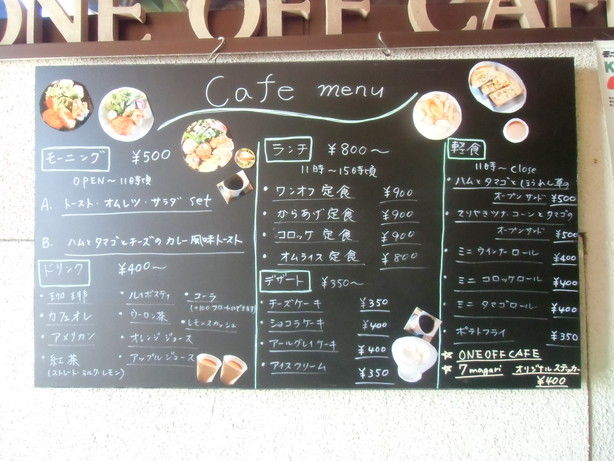 ONE OFF CAFE
Cafe menu
モーニング ¥500
OPEN〜11時頃
A. トースト・オムレツ・サラダ set
B. ハムとタマゴとチーズのカレー風味トースト
ドリンク ¥400〜
・珈琲
・カフェオレ
・アメリカン
・紅茶
(ストレート・ミルク・レモン)
・ルイボスティ
・ウーロン茶
・オレンジジュース
・アップルジュース
・コーラ
・レモンスカッシュ
ランチ ¥800〜
11時〜15時頃
・ワンオフ定食 ¥900
・からあげ定食 ¥900
・コロッケ定食 ¥900
・オムライス定食 ¥800
デザート ¥350〜
・チーズケーキ ¥350
・ショコラケーキ ¥400
・アールグレイケーキ ¥400
・アイスクリーム ¥350
軽食
11時〜close
・ハムとタマゴとほうれん草の
オープンサンド ¥500
・テリヤキツナ・コーンとタマゴの
オープンサンド ¥500
・ミニウインナーロール ¥400
・ミニコロッケロール ¥400
・ミニタマゴロール ¥400
・ポテトフライ ¥350
★ ONE OFF CAFE
★ 7magari オリジナルステッカー
¥400